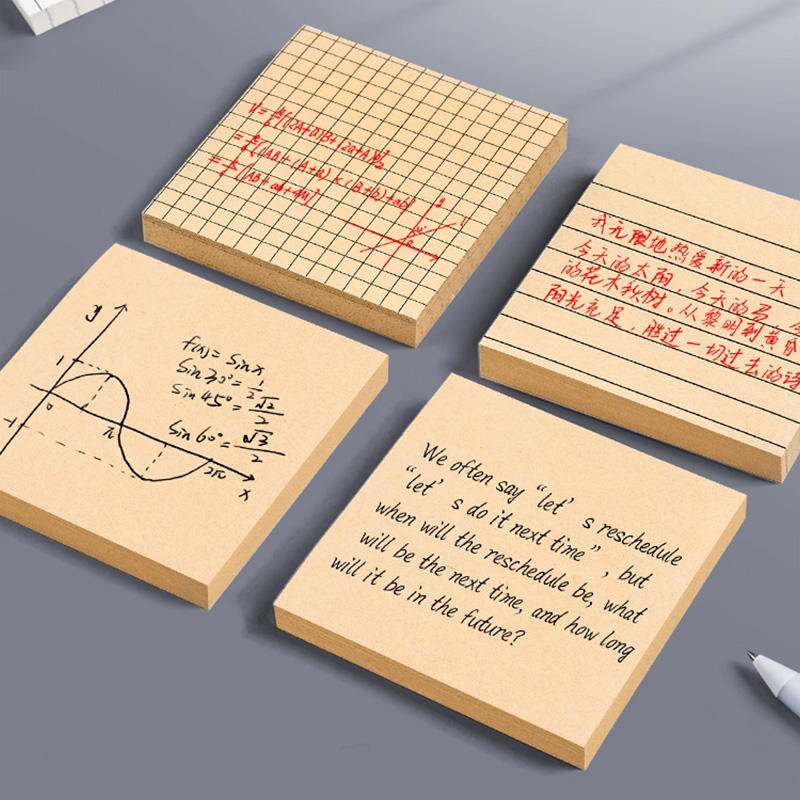 = (AB+(A+a)×(B+b)+ab)
y
我无限地热爱新的一天
今天的太阳，今天的马，今
的花木秋树。从黎明到黄昏
阳光充足，胜过一切过去的诗
y
f(x)=sinx
1
sin30°=1/2
sin45°=√2/2
0
π
sin60°=√3/2
-1
2π
x
We often say “let’ s reschedule
“let’ s do it next time”, but
when will the reschedule be, what
will be the next time, and how long
will it be in the future?